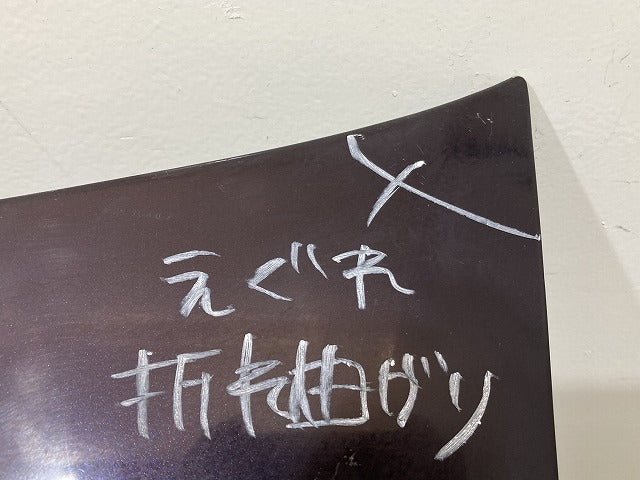 えぐれ
折れ曲がり